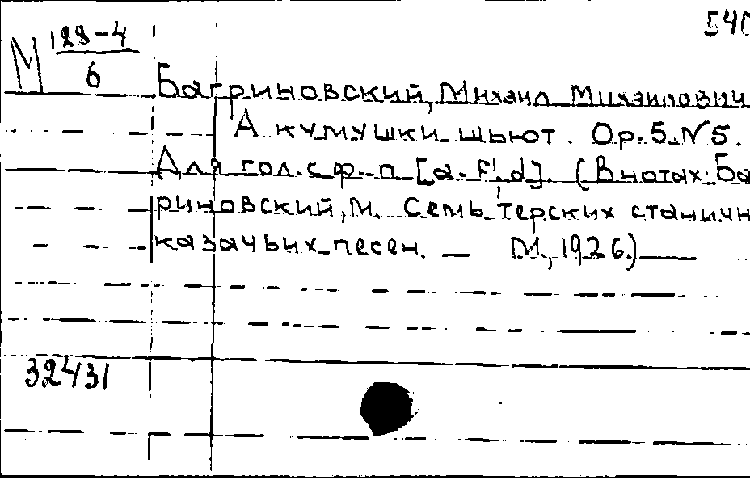 540
М 128-4
6
Багриновский, Михаил Михайлович
А кумушки шьют. Ор. 5. №5.
Для гол. с ф-п [a-f¹, d]. (В нотах: Ба
риновский, М. Семь терских станичн
казачьих песен. — М., 1926.) —
32431